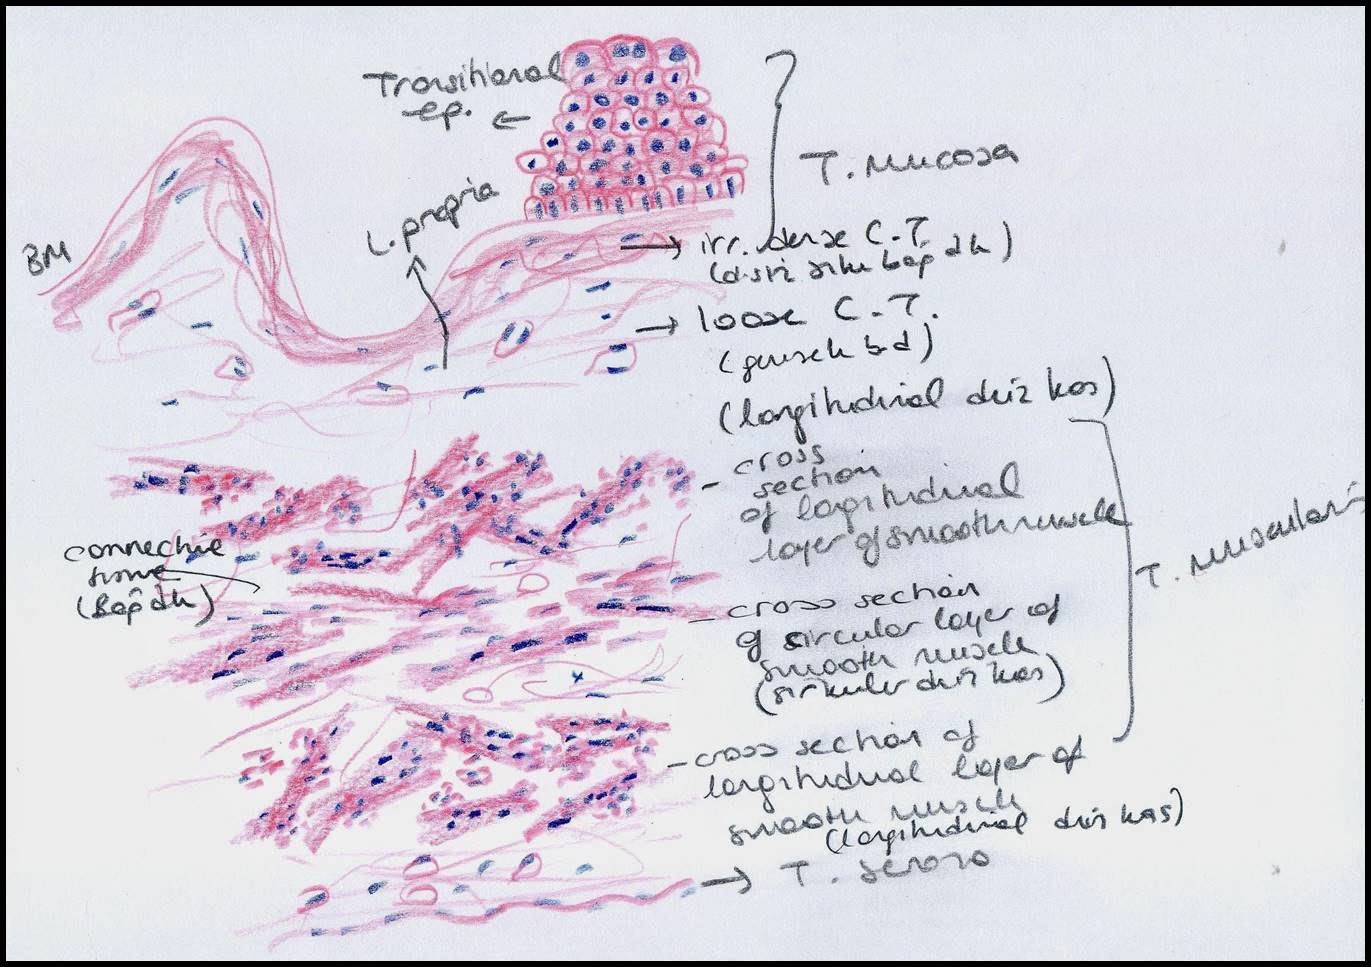 Transitional
ep.
T. Mucosa
L. propria
BM
irr. dense C.T
(düzensiz sıkı bağ dk)
loose C.T.
(gevşek bd)
(longitudinal düz kas)
cross
section
of longitudinal
layer of smooth muscle
T. Muscularis
connective
tissue
(Bağ dk)
cross section
of sircular layer of
smooth muscle
(sirküler düz kas)
cross section of
longitudinal layer of
smooth muscle
(longitudinal düz kas)
T. seroza